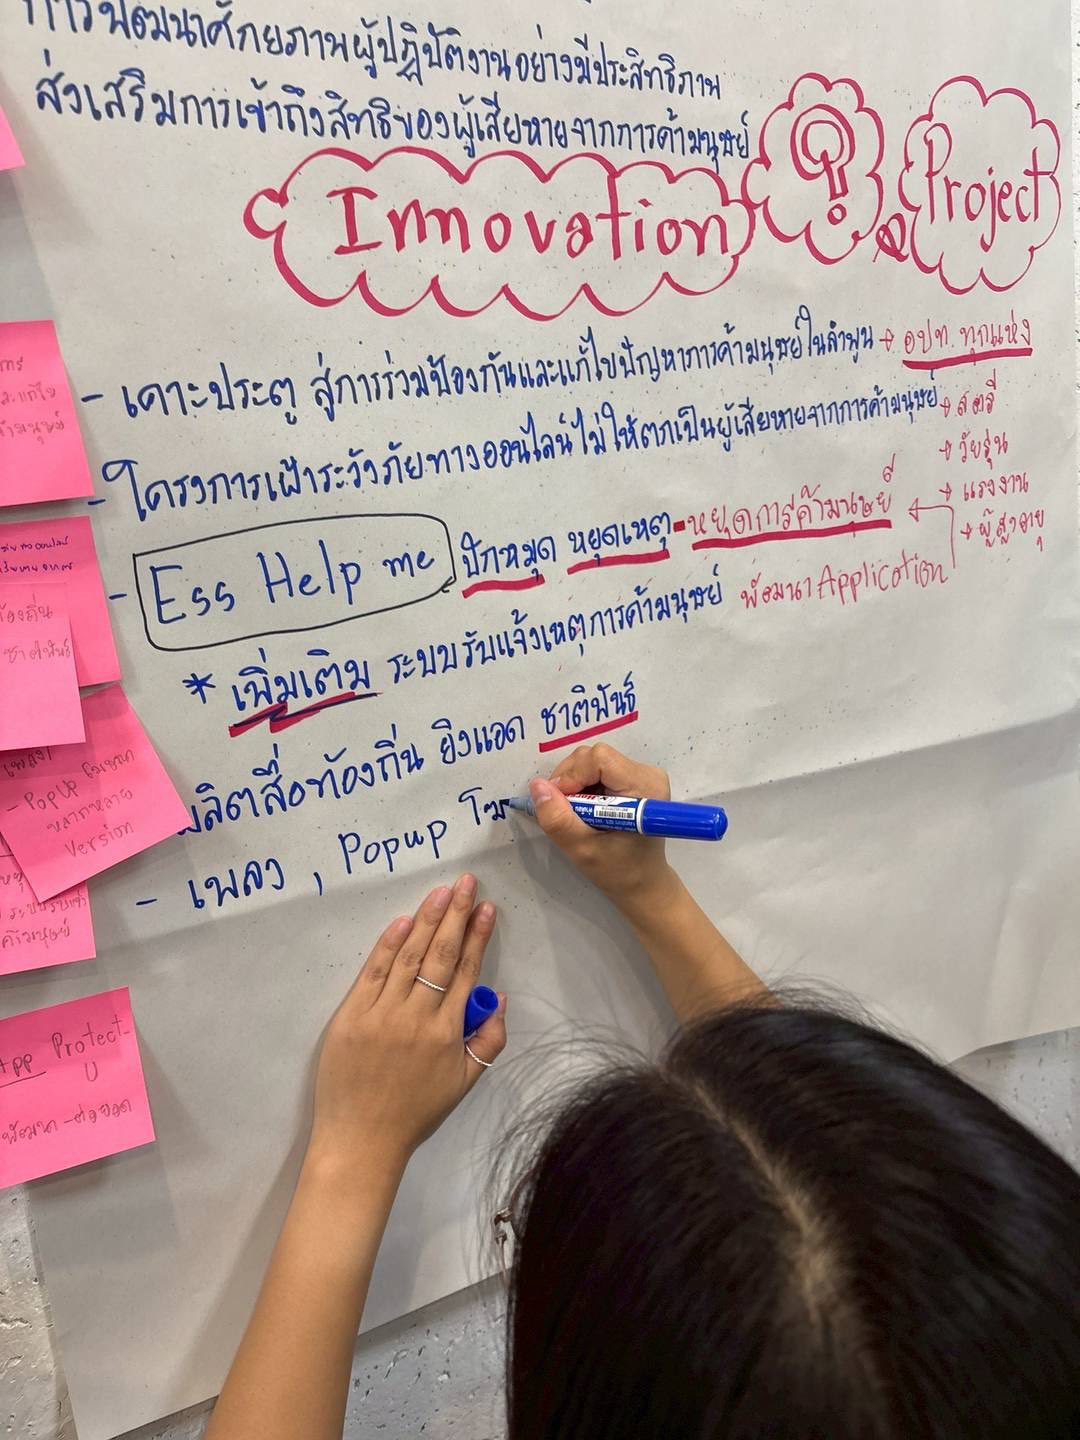 การพัฒนาศักยภาพผู้ปฏิบัติงานอย่างมีประสิทธิภาพ
ส่งเสริมการเข้าถึงสิทธิของผู้เสียหายจากการค้ามนุษย์
Innovation Project
- เคาะประตู สู่การร่วมป้องกันและแก้ไขปัญหาการค้ามนุษย์ในลำพูน → อปท. ทุกแห่ง
- โครงการเฝ้าระวังภัยทางออนไลน์ไม่ให้ตกเป็นผู้เสียหายจากการค้ามนุษย์
→ สตรี
→ วัยรุ่น
→ แรงงาน
→ ผู้สูงอายุ
- Ess Help me ปักหมุด หยุดเหตุ - หยุดการค้ามนุษย์
พัฒนา Application
* เพิ่มเติม ระบบรับแจ้งเหตุการค้ามนุษย์
ผลิตสื่อท้องถิ่น ยิงแอด ชาติพันธุ์
- เพลง , Popup โฆ
ท้องถิ่น
ชาติพันธุ์
เพลง
- PopUp โฆษณา
หลากหลาย
Version
App Protect-
U
พัฒนา - ต่อยอด